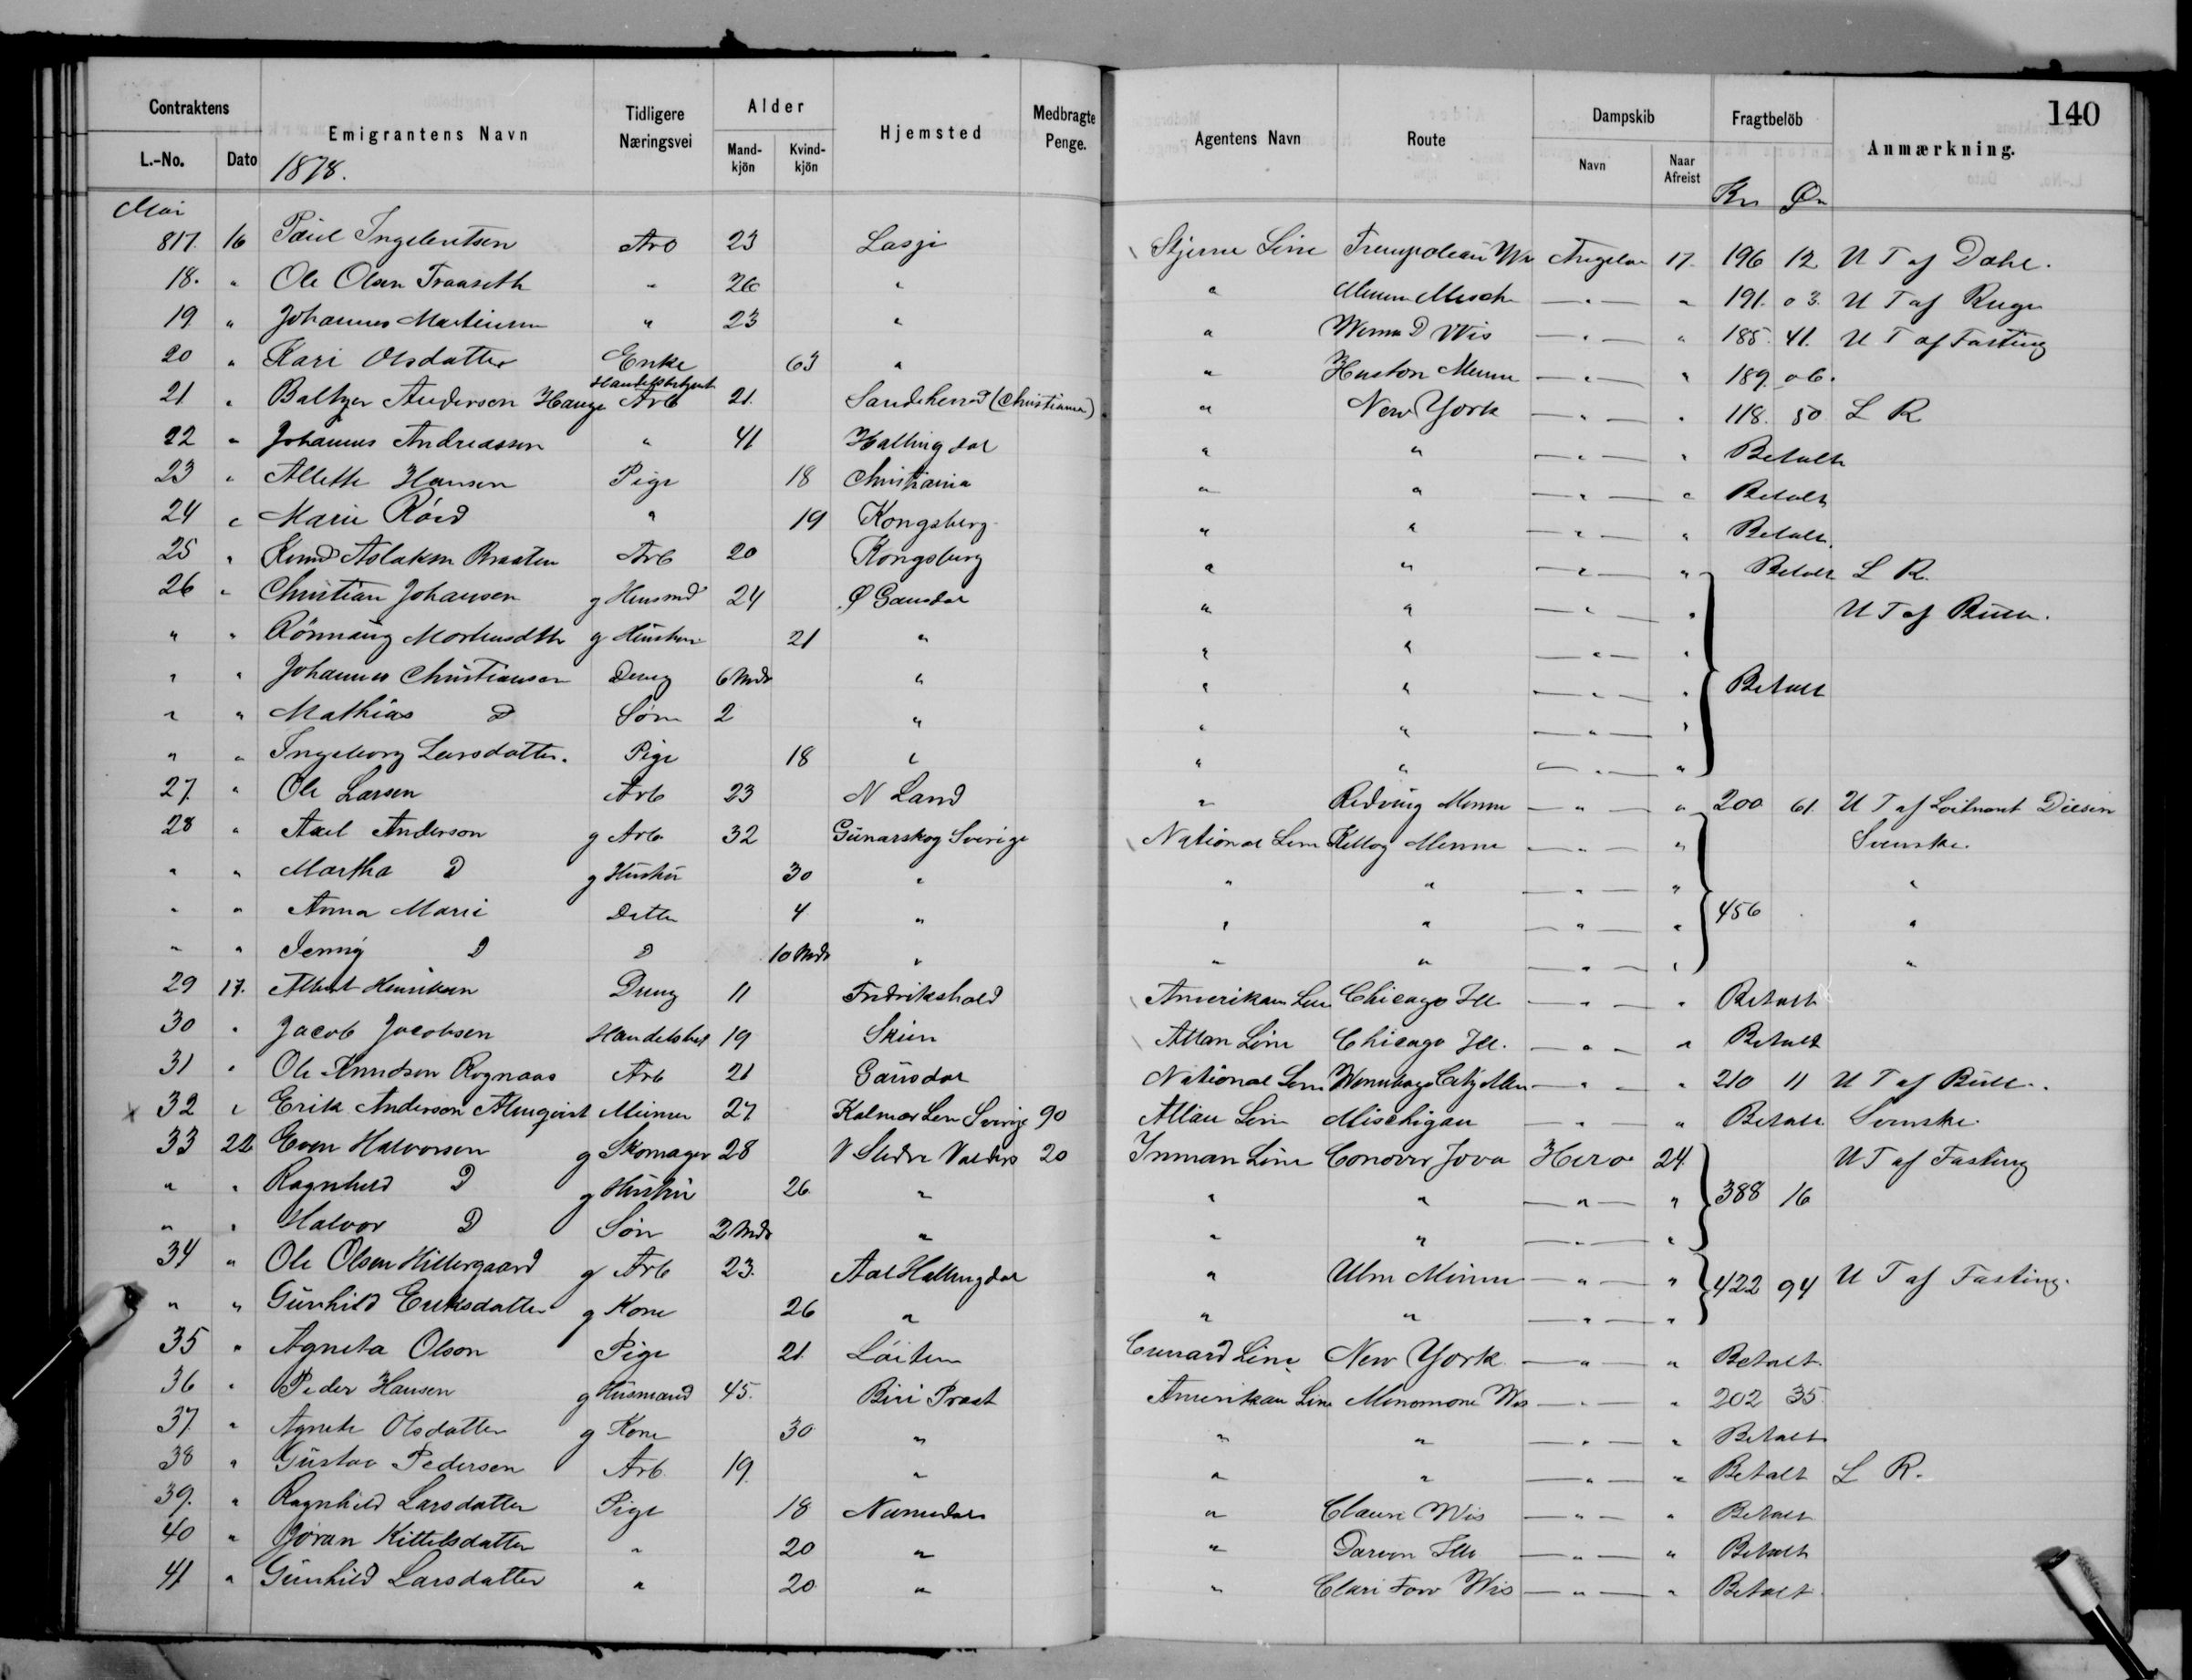 140
Contraktens Emigrantens Navn Tidligere Næringsvei Alder Hjemsted Medbragte Penge. Agentens Navn Route Dampskib Fragtbelöb Anmærkning.
L.-No. Dato 1878. Mandkjön Kvindkjön Navn Naar Afreist Kr Ør
Mai
817. 16 Paul Ingebretsen Arb 23 Lasje Stjerne Line Trempoleau Wis Angelo 17. 196 12 U T af Dahl.
18. " Ole Olsen Traaseth " 26 " " Minn — " — " 191. 03. U T af Ruge
19 " Johannes Martinsen " 23 " " D Wis — " — " 185. 41. U T af Fasting
20 " Kari Olsdatter Enke 63 " " Huston Minn — " — " 189 06.
21 " Baltzer Anderson Hauge Handelsbetjent Arb 21. Sandeherred (Christiania) " New York — " — " 118. 50 L R
22 " Johannes Andreassen " 41 Hallingdal " " — " — " Betalt
23 " Allette Hansen Pige 18 Christiania " " — " — " Betalt
24 " Marie Röed " 19 Kongsberg " " — " — " Betalt.
25 " Knud Aslaksen Braaten Arb 20 Kongsberg " " — " — " Betalt L R.
26 " Christian Johansen g Husmd 24 Ø Gausdal " " — " — " U T af Bull.
" " Rönnaug Mortensdtr g Hustru 21 " " " — " — "
" " Johannes Christiansen Dreng 6 Mdr " " " — " — " Betalt
" " Mathias D Sön 2 " " " — " — "
" " Ingeborg Larsdatter. Pige 18 " " " — " — "
27. " Ole Larsen Arb 23 N Land " Redving Minn — " — " 200 61. U T af Loitnant Diesen
28 " Axel Anderson g Arb 32 Gunarskog Sverige National Line Kellog Minne — " — " Svenske.
" " Martha D g Hustru 30 " " " — " — " "
" " Anna Marie Datter 4 " " " — " — " 456 "
" " Jenny D D 10 Mdr " " " — " — " "
29 17. Albert Henriksen Dreng 11 Fredrikshald Amerikan Line Chicago Ill — " — " Betalt
30 " Jacob Jacobsen Handelsbet 19 Skien Allan Line Chicago Ill. — " — " Betalt
31 " Ole Knudsen Rognaas Arb 21 Gausdal National Line — " — " 210 11 U T af Bull.
x 32 " Erik Anderson Almqvist 27 Kalmar Len Sverige 90 Allan Line Mischigan — " — " Betalt. Svenske.
33 22 Even Halvorsen g Skomager 28 V Slidre Valders 20 Inman Line Conover Jova Hero 24. U T af Fasting
" " Ragnhild D g Hustru 26. " " " — " — " 388 16
" " Halvor D Sön 2 Mdr " " " — " — "
34 " Ole Olsen Hillergaard g Arb 23. Aal Hallingdal " Ulm Minne — " — " 422 94 U T af Fasting.
" " Gunhild Eriksdatter g Kone 26 " " " — " — "
35 " Agneta Olson Pige 21. Löiten Cunard Line New York — " — " Betalt.
36 " Peder Hansen g Husmand 45. Biri Præst Amerikan Line Menomone Wis — " — " 202 35.
37. " Agnete Olsdatter g Kone 30 " " " — " — " Betalt
38 " Gustav Pedersen Arb. 19. " " " — " — " Betalt L R.
39. " Ragnhild Larsdatter Pige 18 Numedal " Wis — " — " Betalt
40 " Jöran Kittelsdatter " 20 " " Ills — " — " Betalt
41 " Gunhild Larsdatter " 20 " " Wis — " — " Betalt.